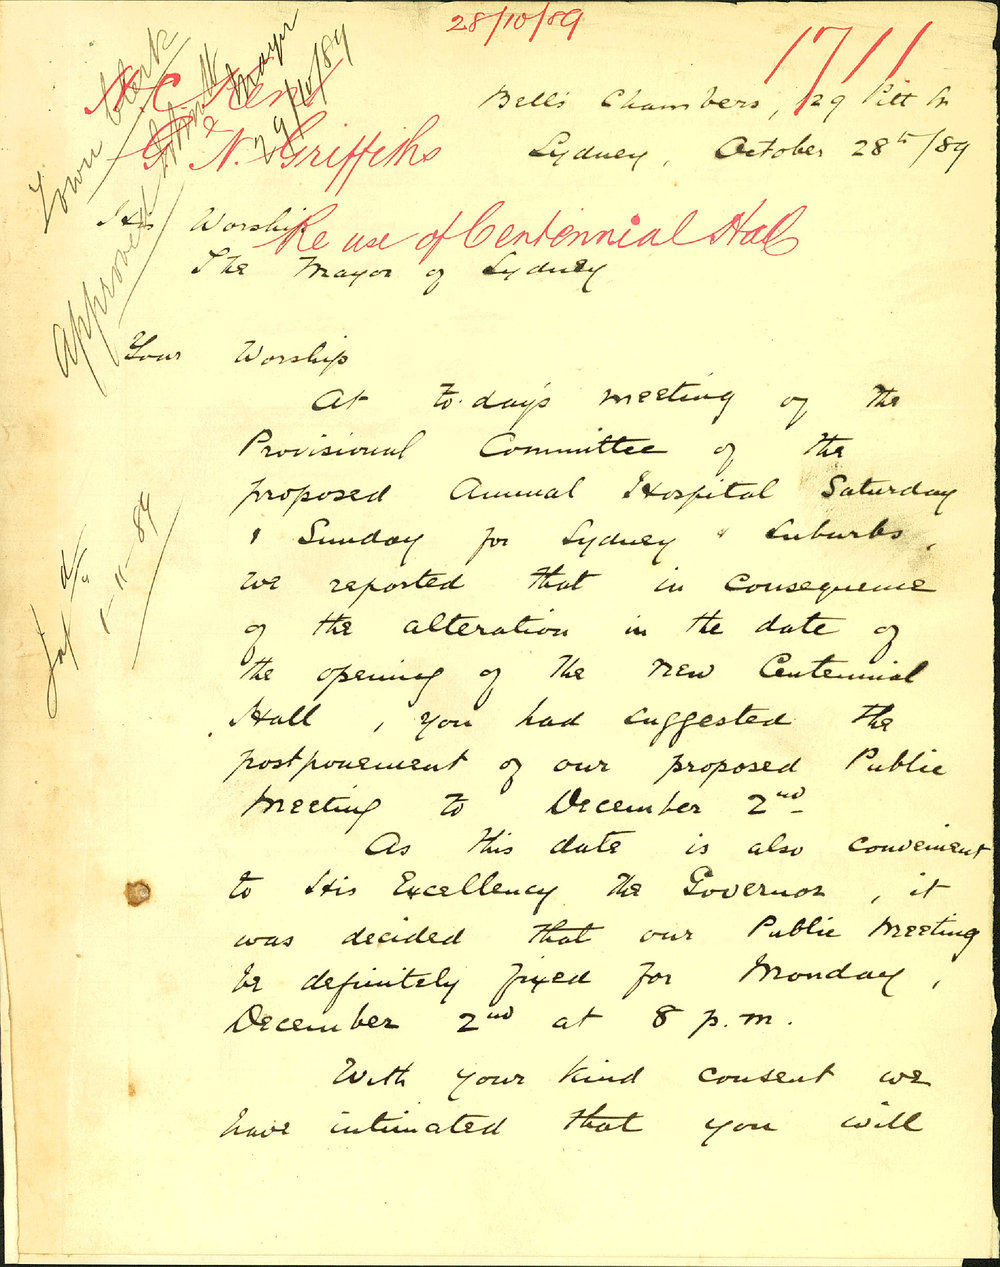 28/10/89
1711
H.C. Kent
G. N. Griffiths
Re use of Centennial Hall
Town Clerk
Approved
Mayor
29/10/89
1-11-89
Bell's Chambers, 129 Pitt St
Sydney, October 28th/89
His Worship
The Mayor of Sydney
Your Worship
At to-day's meeting of the
Provisional Committee of the
proposed Annual Hospital Saturday
& Sunday for Sydney & Suburbs,
we reported that in consequence
of the alteration in the date of
the opening of the new Centennial
Hall, you had suggested the
postponement of our proposed Public
Meeting to December 2nd
As this date is also convenient
to His Excellency the Governor, it
was decided that our Public Meeting
be definitely fixed for Monday,
December 2nd at 8 p.m.
With your kind consent we
have intimated that you will